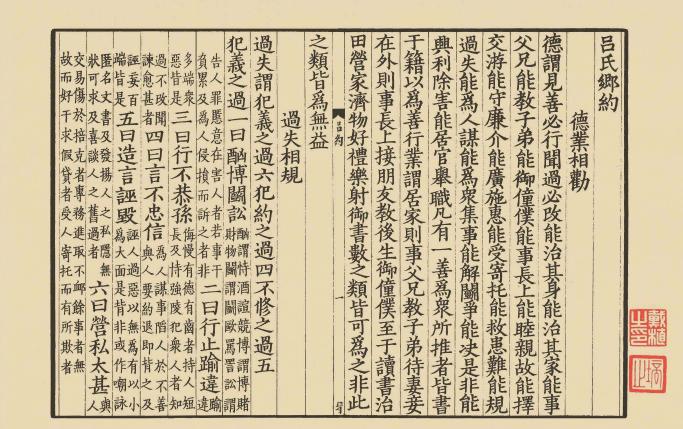 呂氏鄉約
德業相勸
德謂見善必行聞過必改能治其身能治其家能事
父兄能教子弟能御僮僕能事長上能睦親故能擇
交游能守廉介能廣施惠能受寄托能救患難能規
過失能爲人謀能爲衆集事能解鬭爭能决是非能
興利除害能居官舉職凡有一善爲衆所推者皆書
于籍以爲善行業謂居家則事父兄教子弟待妻妾
在外則事長上接朋友教後生御僮僕至于讀書治
田營家濟物好禮樂射御書數之類皆可爲之非此
之類皆爲無益
過失相規
過失謂犯義之過六犯約之過四不修之過五
犯義之過一曰酗博鬭訟酗謂恃酒諠競博謂博賭財物鬭謂鬭毆罵詈訟謂
告人罪慝意在害人者若事干負累及爲人侵損而訴之者非二曰行止踰違踰違
多端衆惡皆是三曰行不恭孫侮慢有德有齒者持人短長及恃強陵犯衆人者知
過不改聞諫愈甚者四曰言不忠信爲人謀事陷人於不善與人要約退即背之及
誣妄百端皆是五曰造言誣毀誣人過惡以無爲有以小爲大面是背非或作嘲詠
匿名文書及發揚人之私隱無狀可求及喜談人之舊過者六曰營私太甚與人
交易傷於掊克者專務進取不卹餘事者無故而好干求假貸者受人寄托而有所欺者